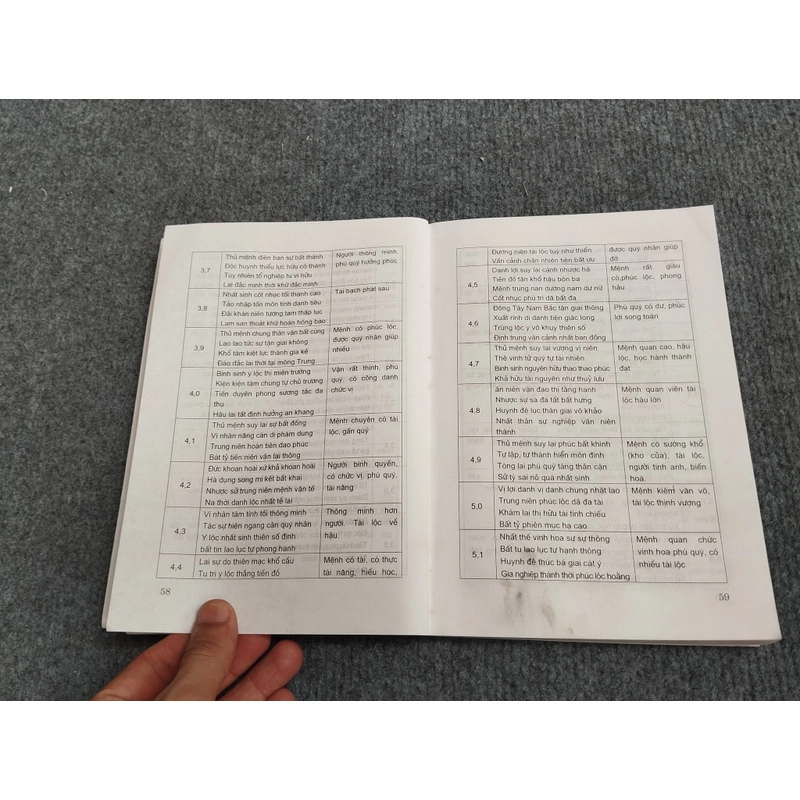 3,7
Thử mệnh diên ban sự bất thành
Độc huynh thiếu lực hữu cô thành
Tuy nhiên tổ nghiệp tu vi hữu
Lai đắc minh thời khử đắc minh
Người thông minh,
phú quý hưởng phúc
3,8
Nhất sinh cốt nhục tối thanh cao
Tảo nhập tôn môn tính danh tiêu
Đãi khán niên tương tam thập lục
Lam san thoát khử hoán hồng bào
Tài bạch phát sau
3,9
Thử mệnh chung thân vận bất cùng
Lao lao tức sự tận giai không
Khổ tâm kiệt lực thành gia kế
Đáo đắc lai thời tại mộng Trung
Mệnh có phúc lộc,
được quý nhân giúp
nhiều
4,0
Bình sinh y lộc thị miên trường
Kiện kiện tâm chung tự chủ trương
Tiền duyên phong sương tắc đa
thụ
Hậu lai tất định hưởng an khang
Vận rất thịnh, phú
quý, có công danh
chức vị
4,1
Thủ mệnh suy lai sự bất đồng
Vi nhân năng cán dị phàm dung
Trung niên hoàn tiên đao phúc
Bát tỷ tiền niên vận lai thông
Mệnh chuyên có tài
lộc, gần quý
4,2
Đức khoan hoài xử khả khoan hoài
Hà dụng song mi kết bất khai
Nhược sử trung niên mệnh vận tế
Na thời danh lộc nhất tề lai
Người bình quyền,
có chức vị, phú quý,
tài năng
4,3
Vi nhân tâm tính tối thông minh
Tác sự hiên ngang cận quý nhân
Y lộc nhất sinh thiên số định
bất tín lao lục tự phong hanh
Thông minh hơn
người. Tài lộc về
hậu.
4,4
Lai sự do thiên mạc khổ cầu
Tu tri y lộc thắng tiền đồ
Mệnh có tài, có thực
tài năng, hiếu học,
58
Đương niên tài lộc tuỳ như thiển
Vãn cảnh chân nhiên tiện bất ưu
được quý nhân giúp
đỡ
4,5
Danh lợi suy lai cánh nhược hà
Tiền đồ tân khổ hậu bôn ba
Mệnh trung nan dưỡng nam dữ nữ
Cốt nhục phù trì dã bất đa
Mệnh rất giàu
có, phúc lộc, phong
hậu
4,6
Đông Tây Nam Bắc tận giai thông
Xuất rinh di danh tiện giác long
Trùng lộc y vô khuy thiên số
Định trung vãn cảnh nhất ban đồng
Phú quý có dư, phúc
lợi song toàn
4,7
Thử mệnh suy lai vượng vị niên
Thê vinh tử quý tự tại nhiên
Bình sinh nguyên hữu thao thao phúc
Khả hữu tài nguyên như thuỷ lưu
Mệnh quan cao, hậu
lộc, học hành thành
đạt
4,8
ấn niên vận đao thì tằng hanh
Nhược sự sa đà tất bất hưng
Huynh đệ lục thân giai vô kháo
Nhất thân sự nghiệp vãn niên
thành
Mệnh quan viên tài
lộc hậu lớn
4,9
Thủ mệnh suy lai phúc bất khinh
Tự lập, tự thành hiển môn đình
Tòng lai phú quý tằng thân cận
Sử tỳ sai nô quá nhất sinh
Mệnh có sướng khổ
(kho của), tài lộc,
người tinh anh, biến
hoá.
5,0
Vị lợi danh vị danh chung nhật lao
Trung niên phúc lộc dã đa tài
Khảm lai thì hữu tài tinh chiếu
Bất tỷ phiên mục hạ cao.
Mệnh kiêm văn võ,
tài lộc thịnh vượng
5,1
Nhất thế vinh hoa sự sự thông
Bất tu lao lục tự hạnh thông
Huynh đệ thúc bá giai cát ý
Gia nghiệp thành thời phúc lộc hoằng
Mệnh quan chức
vinh hoa phú quý, có
nhiều tài lộc
59